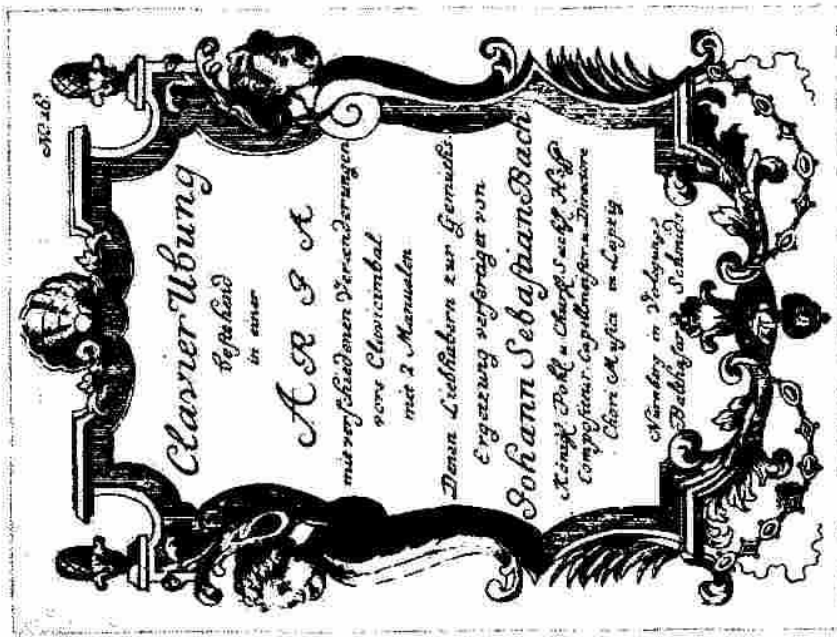 No. 16.
Clavier Ubung
bestehend
in einer
ARIA
mit verschiedenen Verænderungen
vors Clavicimbal
mit 2 Manualen.
Denen Liebhabern zur Gemüths-
Ergetzung verfertiget von
Johann Sebastian Bach
Königl. Pohl. u. Churfl. Sæchs. Hoff
Compositeur, Capellmeister, u. Directore
Chori Musici in Leipzig.
Nürnberg in Verlegung
Balthasar Schmids